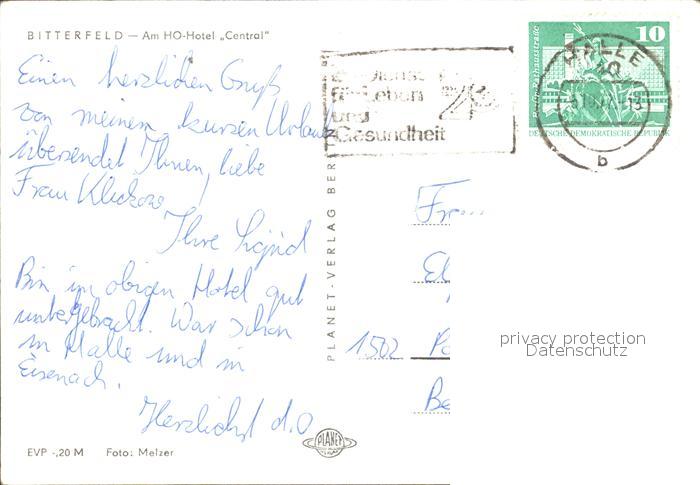 BITTERFELD — Am HO-Hotel „Central"
Einen herzlichen Gruß
von meinem kurzen Urlaub
übersendet Ihnen, liebe
Frau
Ihre Sigrid
Bin im obigen Hotel gut
untergebracht. War schon
in Halle und in
Eisenach.
Herzlichst d.O
EVP -,20 M Foto: Melzer
PLANET-VERLAG BER
PLANET
für Leben
und
Gesundheit
HALLE
b
10
DEUTSCHE DEMOKRATISCHE REPUBLIK
Fr...
El
1502
Be
privacy protection
Datenschutz